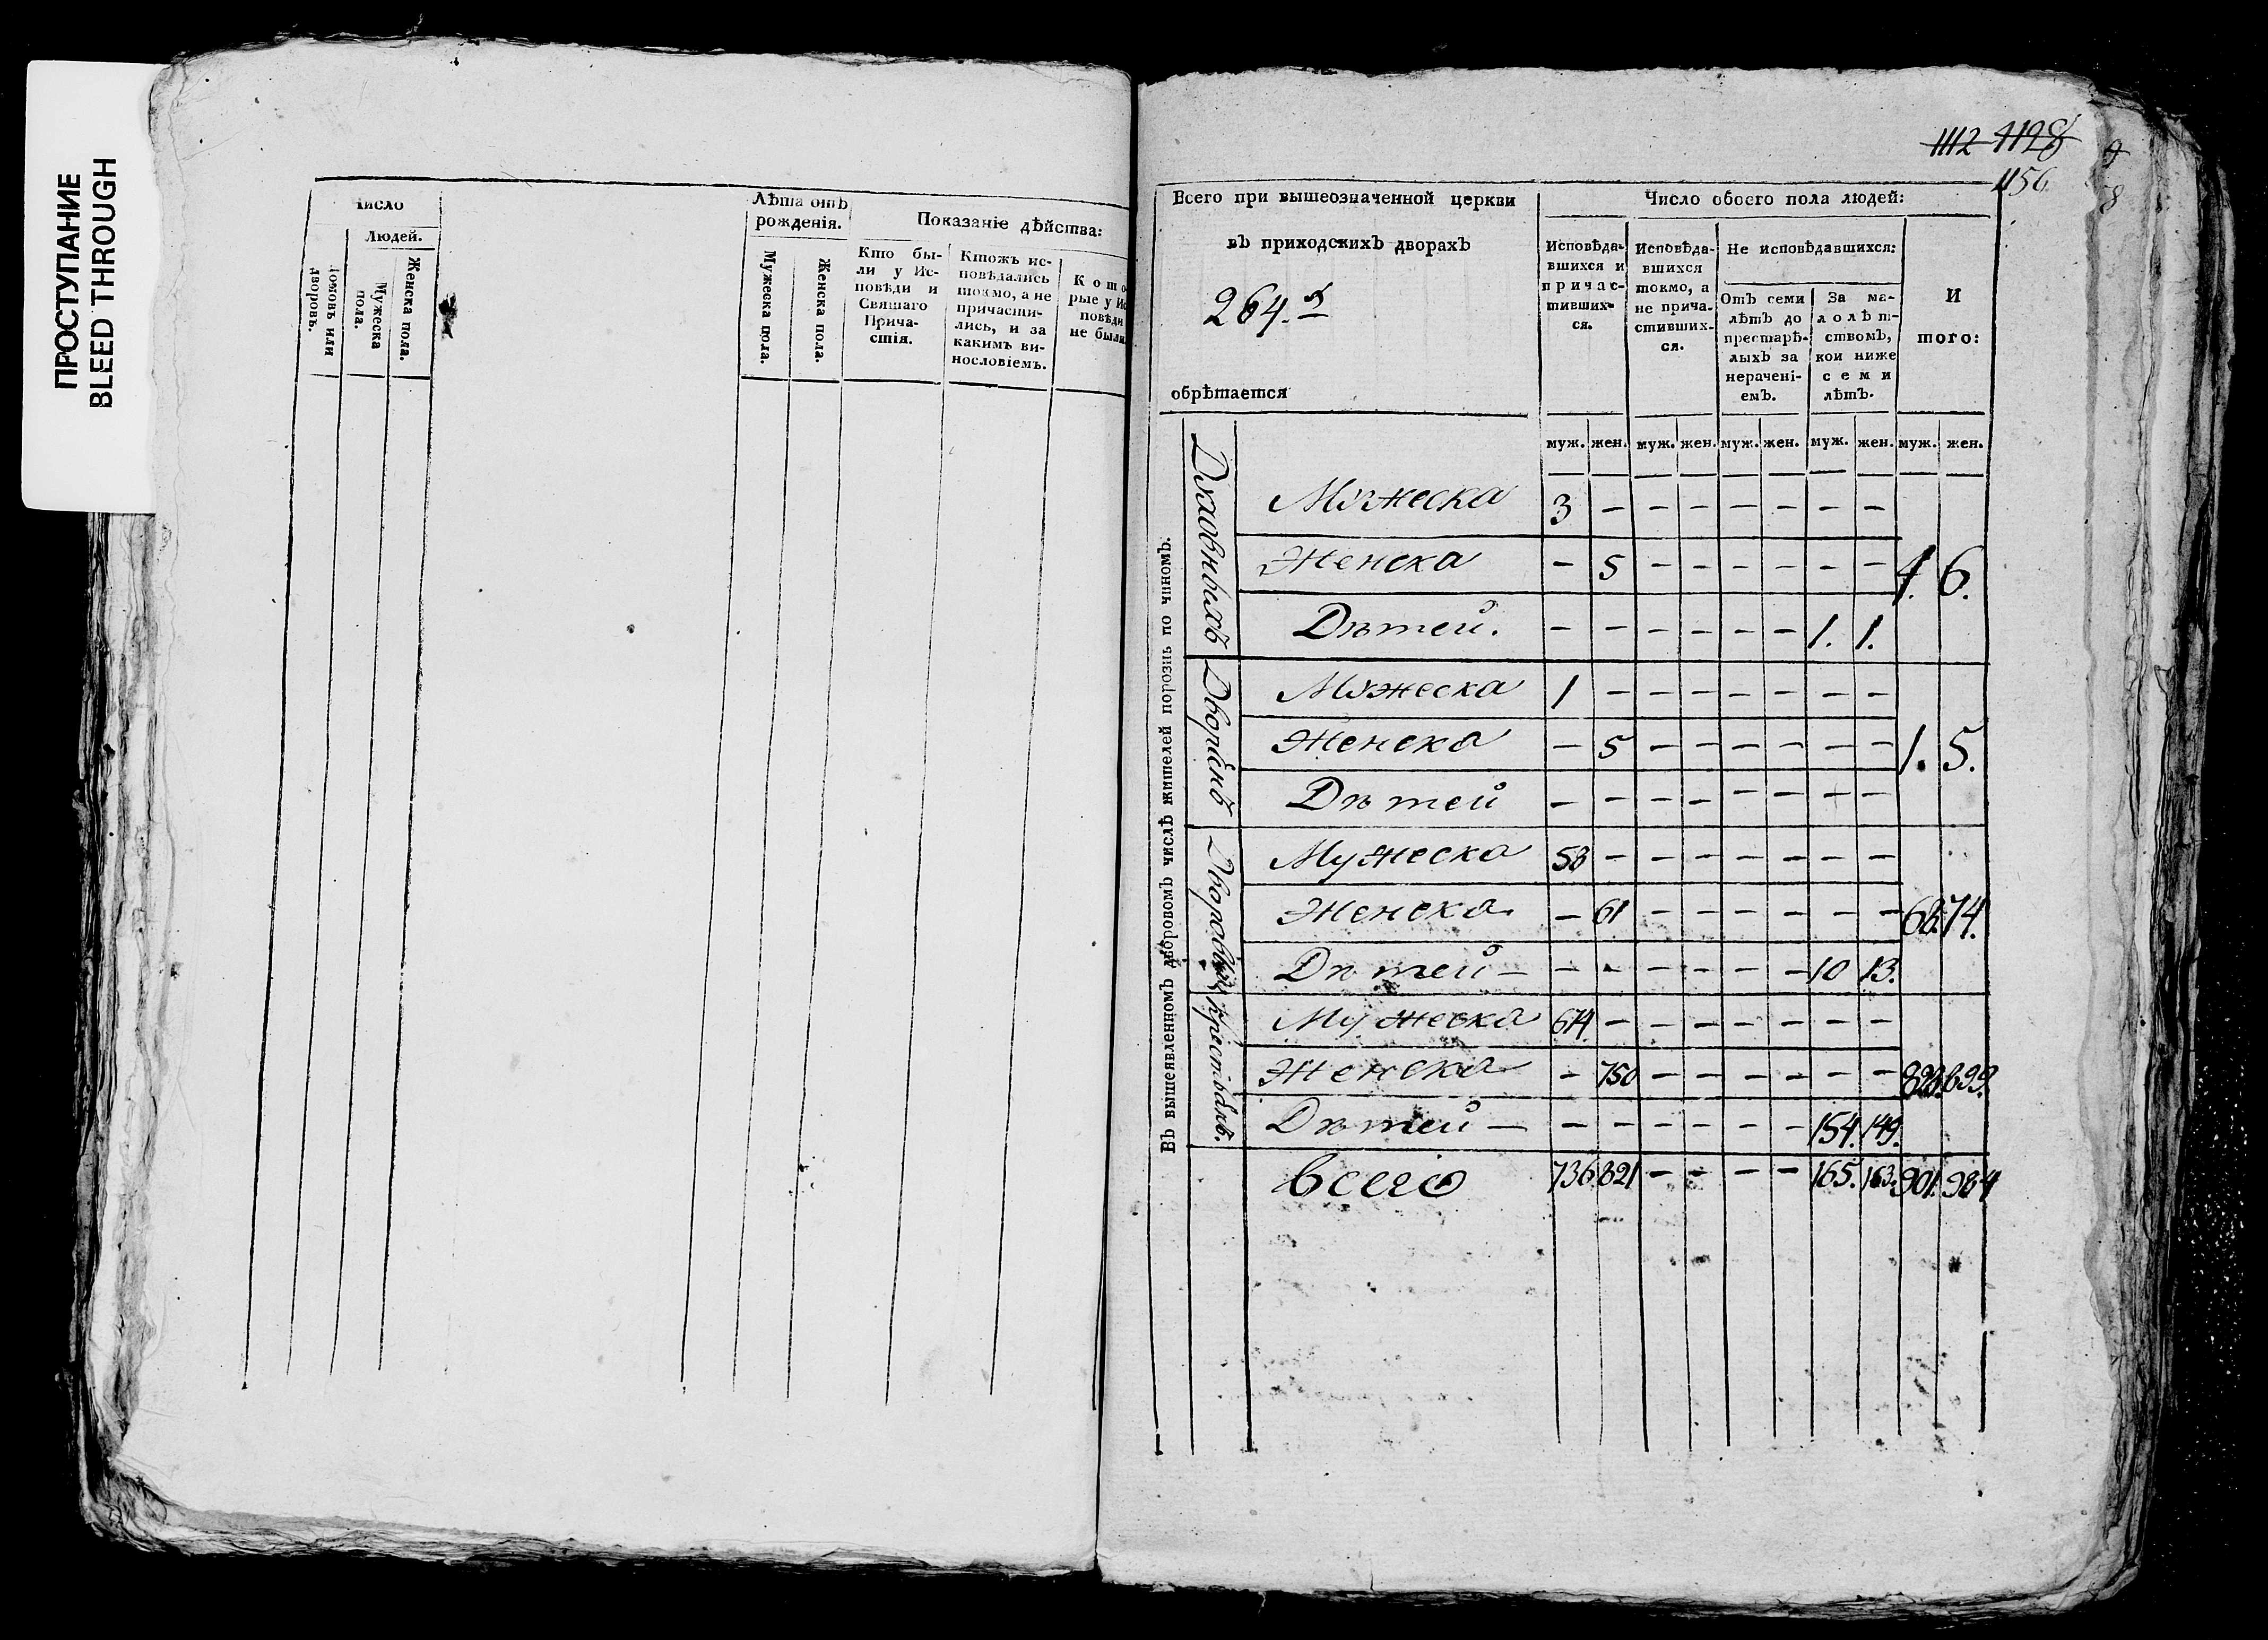 ПРОСТУПАНИЕ
BLEED THROUGH
Число
Людей.
Домовъ или дворовъ.
Мужеска пола.
Женска пола.
Лѣта отъ
рожденія.
Мужеска пола.
Женска пола.
Показаніе дѣйства:
Кто бы-
ли у Ис-
повѣди и
Святаго
Прича-
стія.
Ктожъ ис-
повѣдались
токмо, а не
причасти-
лись, и за
какимъ ви-
нословіемъ.
Кото-
рые у Ис
повѣди
не были
1112 1128
1156
Всего при вышеозначенной церкви
въ приходскихъ дворахъ
264.хъ
обрѣтается
Число обоего пола людей:
Исповѣда-
вшихся и
причас-
тивших-
ся.
Исповѣда-
вшихся
токмо, а
не прича-
стивших-
ся.
Не исповѣдавшихся:
Отъ семи
лѣтъ до
престарѣ-
лыхъ за
нерачені-
емъ.
За ма-
лолѣт-
ствомъ,
кои ниже
семи
лѣтъ.
И
того:
муж. жен. муж. жен. муж. жен. муж. жен. муж. жен.
Въ вышеявленномъ дворовомъ числѣ жителей порознь по чиномъ.
Духовныхъ
Мужеска 3 – – – – – – –
Женска – 5 – – – – – – 4. 6.
Дѣтей. – – – – – – 1. 1.
Дворянъ
Мужеска 1 – – – – – – –
Женска – 5 – – – – – – 1. 5.
Дѣтей – – – – – – – –
Дворовыхъ
Мужеска 58 – – – – – – –
Женска – 61 – – – – – – 68. 74.
Дѣтей – – – – – – – 10 13.
Крестьянъ.
Мужеска 674 – – – – – – –
Женска – 750 – – – – – – 828. 899.
Дѣтей – – – – – – – 154. 149.
Всего 736 821 – – – – 165. 163. 901. 984